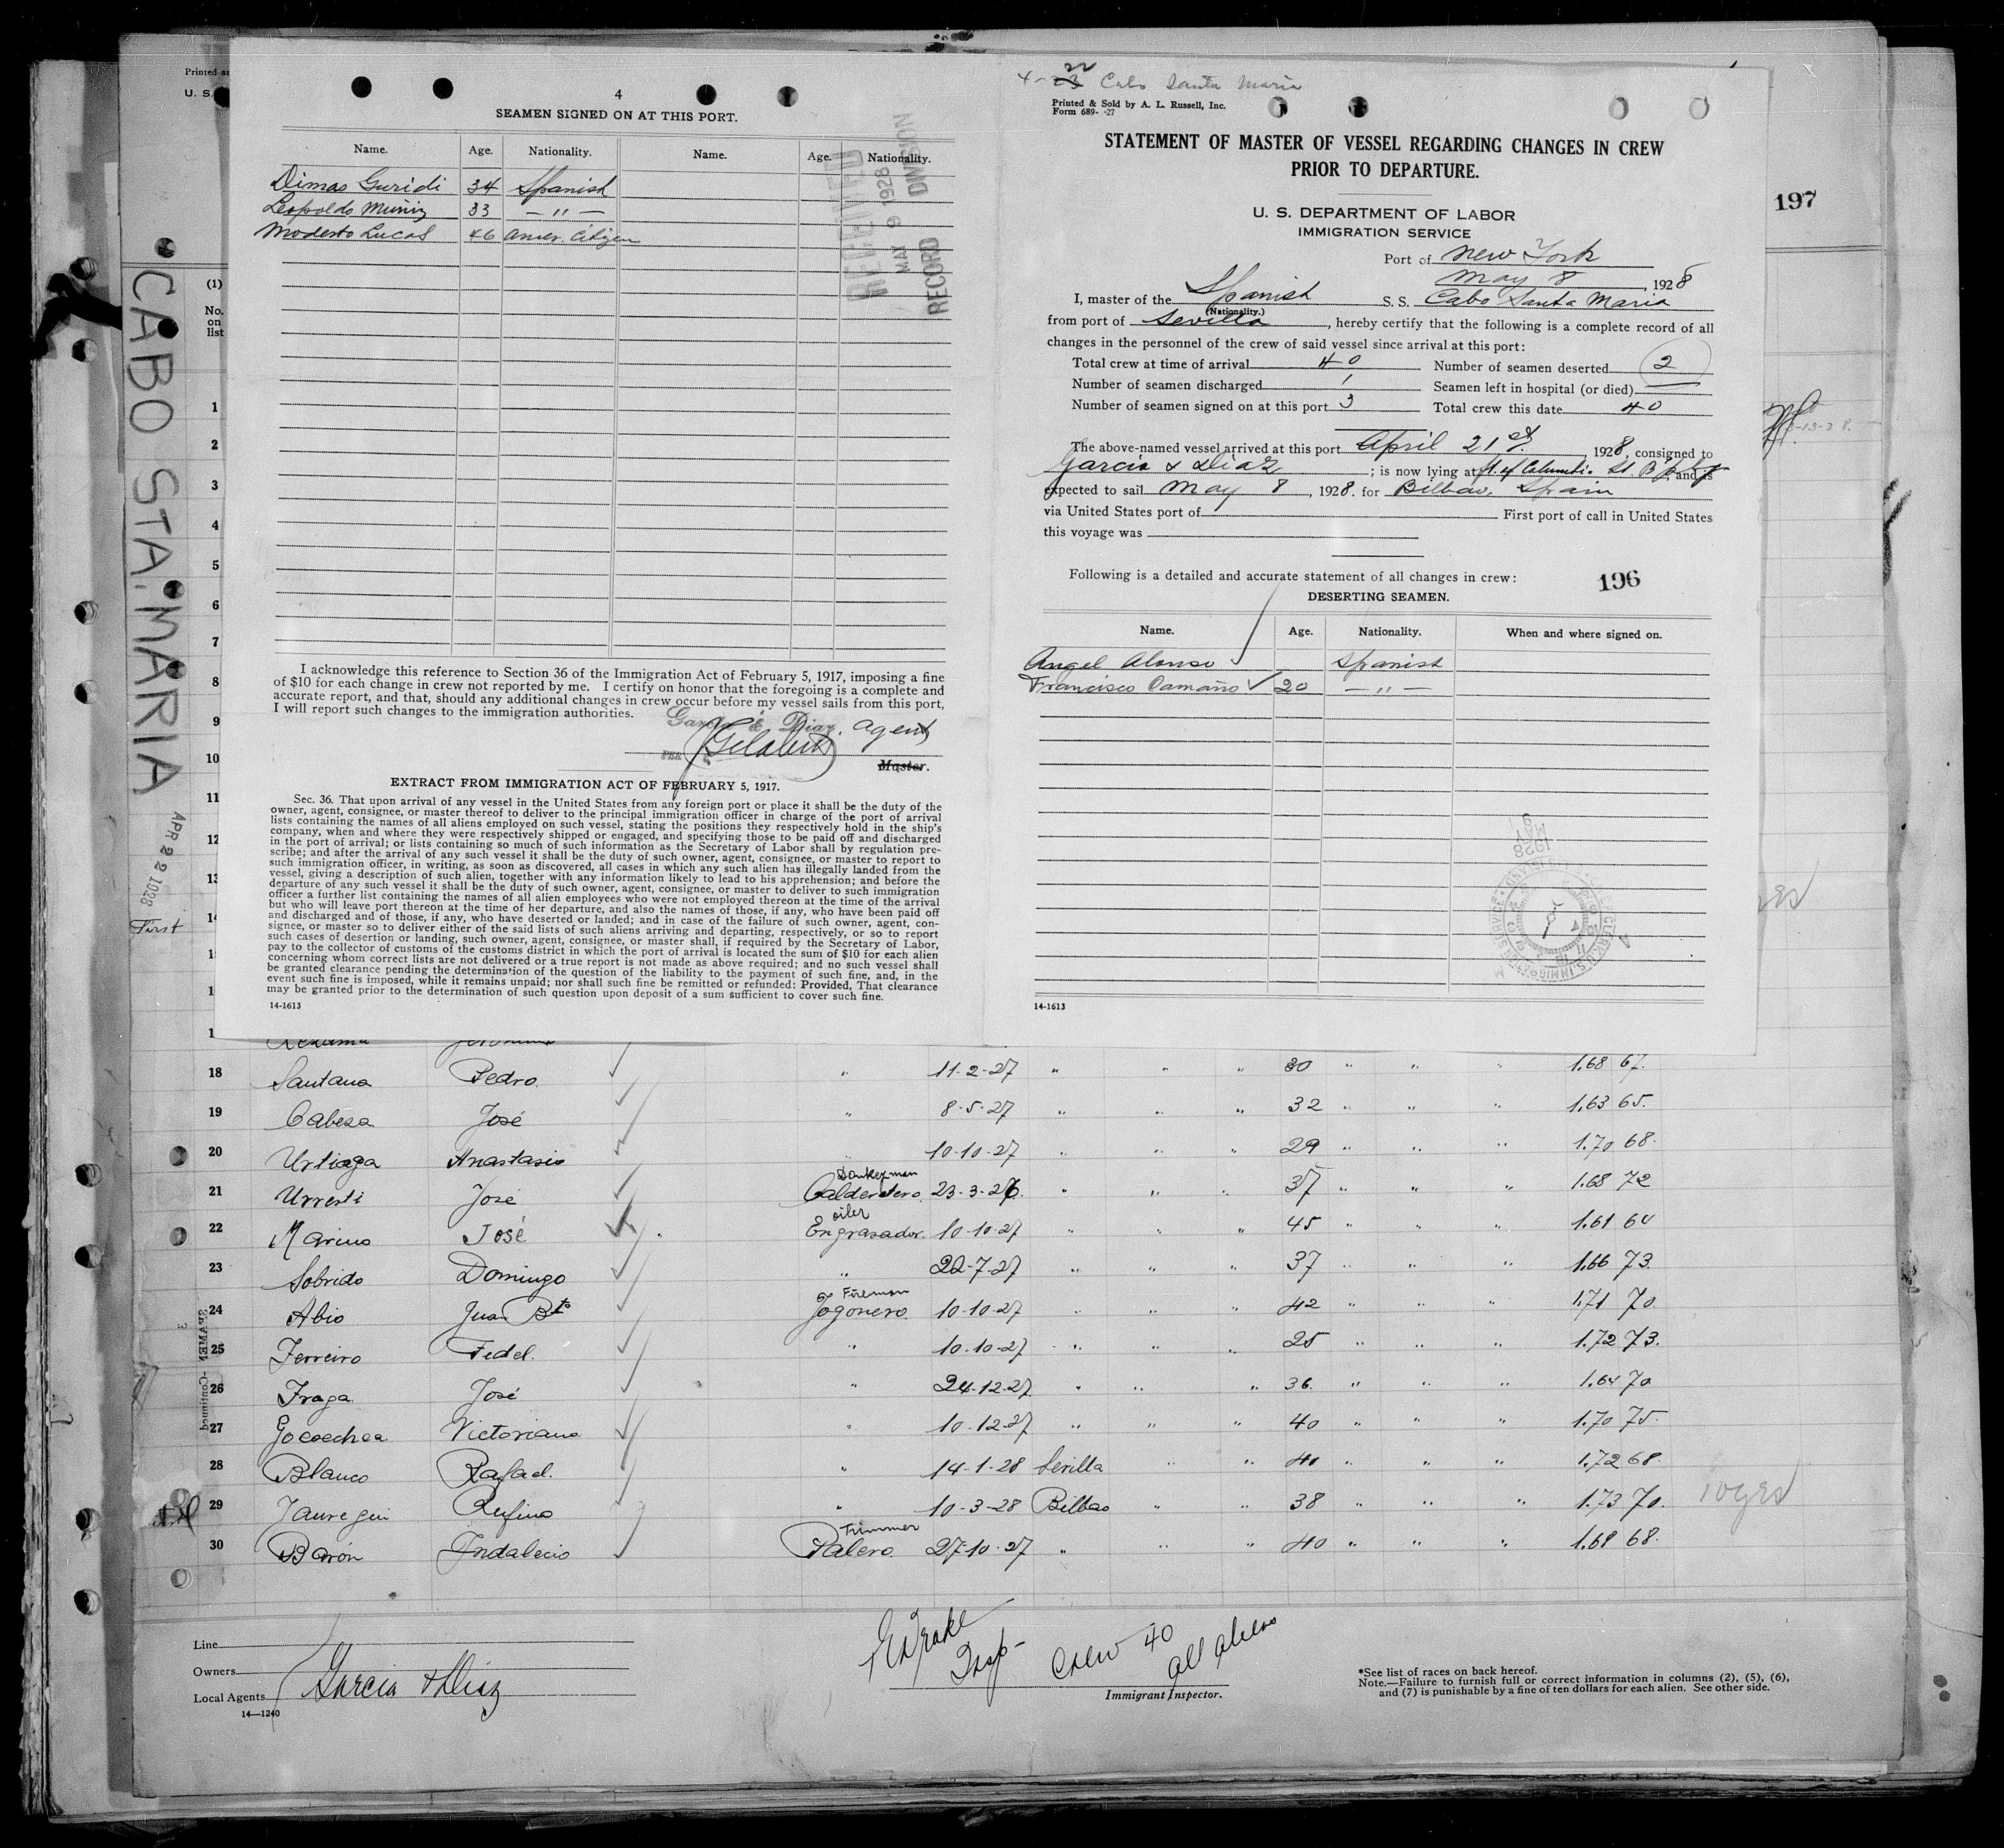 Printed
U. S.
197
(1)
No.
on
list
CABO STA. MARIA
APR 22 1928
First
4
SEAMEN SIGNED ON AT THIS PORT.
Name. Age. Nationality. Name. Age. Nationality.
Dimas Guridi 34 Spanish
Leopoldo Muñiz 33 — " —
Modesto Lucas 46 Amer. Citizen
RECEIVED
MAY 9 1928
RECORD DIVISION
I acknowledge this reference to Section 36 of the Immigration Act of February 5, 1917, imposing a fine
of $10 for each change in crew not reported by me. I certify on honor that the foregoing is a complete and
accurate report, and that, should any additional changes in crew occur before my vessel sails from this port,
I will report such changes to the immigration authorities.
Garcia & Diaz, Agent
PER
Master.
EXTRACT FROM IMMIGRATION ACT OF FEBRUARY 5, 1917.
Sec. 36. That upon arrival of any vessel in the United States from any foreign port or place it shall be the duty of the
owner, agent, consignee, or master thereof to deliver to the principal immigration officer in charge of the port of arrival
lists containing the names of all aliens employed on such vessel, stating the positions they respectively hold in the ship's
company, when and where they were respectively shipped or engaged, and specifying those to be paid off and discharged
in the port of arrival; or lists containing so much of such information as the Secretary of Labor shall by regulation pre-
scribe; and after the arrival of any such vessel it shall be the duty of such owner, agent, consignee, or master to report to
such immigration officer, in writing, as soon as discovered, all cases in which any such alien has illegally landed from the
vessel, giving a description of such alien, together with any information likely to lead to his apprehension; and before the
departure of any such vessel it shall be the duty of such owner, agent, consignee, or master to deliver to such immigration
officer a further list containing the names of all alien employees who were not employed thereon at the time of the arrival
but who will leave port thereon at the time of her departure, and also the names of those, if any, who have been paid off
and discharged and of those, if any, who have deserted or landed; and in case of the failure of such owner, agent, con-
signee, or master so to deliver either of the said lists of such aliens arriving and departing, respectively, or so to report
such cases of desertion or landing, such owner, agent, consignee, or master shall, if required by the Secretary of Labor,
pay to the collector of customs of the customs district in which the port of arrival is located the sum of $10 for each alien
concerning whom correct lists are not delivered or a true report is not made as above required; and no such vessel shall
be granted clearance pending the determination of the question of the liability to the payment of such fine, and, in the
event such fine is imposed, while it remains unpaid; nor shall such fine be remitted or refunded: Provided, That clearance
may be granted prior to the determination of such question upon deposit of a sum sufficient to cover such fine.
14-1613
4-22 Cabo Santa Maria
Printed & Sold by A. L. Russell, Inc.
Form 689- -27
STATEMENT OF MASTER OF VESSEL REGARDING CHANGES IN CREW
PRIOR TO DEPARTURE.
U. S. DEPARTMENT OF LABOR
IMMIGRATION SERVICE
Port of New York
May 8, 1928
I, master of the Spanish S. S. Cabo Santa Maria
(Nationality.)
from port of Sevilla, hereby certify that the following is a complete record of all
changes in the personnel of the crew of said vessel since arrival at this port:
Total crew at time of arrival 40 Number of seamen deserted 2
Number of seamen discharged 1 Seamen left in hospital (or died) —
Number of seamen signed on at this port 3 Total crew this date 40
The above-named vessel arrived at this port April 21st, 1928, consigned to
Garcia & Diaz; is now lying at ft. of Columbia St. Bklyn, and is
expected to sail May 8, 1928. for Bilbao, Spain
via United States port of First port of call in United States
this voyage was
Following is a detailed and accurate statement of all changes in crew:
196
DESERTING SEAMEN.
Name. Age. Nationality. When and where signed on.
Angel Alonso Spanish
Francisco Camaño 20 — " —
MAY 9 1928
14-1613
1
2
3
4
5
6
7
8
9
10
11
12
13
14
18 Santana Pedro " 11-2-27 " " " 30 " " " 1.68 67.
19 Cabeza José " 8-5-27 " " " 32 " " " 1.63 65.
20 Urtiaga Anastasio " 10-10-27 " " " 29 " " " 1.70 68.
21 Urresti José Donkeyman Calderetero. 23-3-26. " " " 37 " " " 1.68 72
22 Marino José oiler Engrasador. 10-10-27 " " " 45 " " " 1.61 64
23 Sobrido Domingo " 22-7-27 " " " 37 " " " 1.66 73.
24 Abio Juan Bto Fireman Fogonero. 10-10-27 " " " 42 " " " 1.71 70.
25 Ferreiro Fidel. " 10-10-27 " " " 25 " " " 1.72 73.
26 Fraga José " 24-12-27 " " " 36. " " " 1.64 70
27 Gocoechea Victoriano " 10-12-27 " " " 40 " " " 1.70 75.
28 Blanco Rafael. " 14-1-28 Sevilla " " 40 " " " 1.72 68.
29 Jauregui Rufino " 10-3-28 Bilbao " " 38 " " " 1.73 70. 10yrs
30 Barón Indalecio Trimmer Palero. 27-10-27 " " " 40 " " " 1.68 68.
Line
Owners
Local Agents Garcia & Diaz
14—1240
Insp- Crew 40
all aliens
Immigrant Inspector.
*See list of races on back hereof.
Note.—Failure to furnish full or correct information in columns (2), (5), (6),
and (7) is punishable by a fine of ten dollars for each alien. See other side.